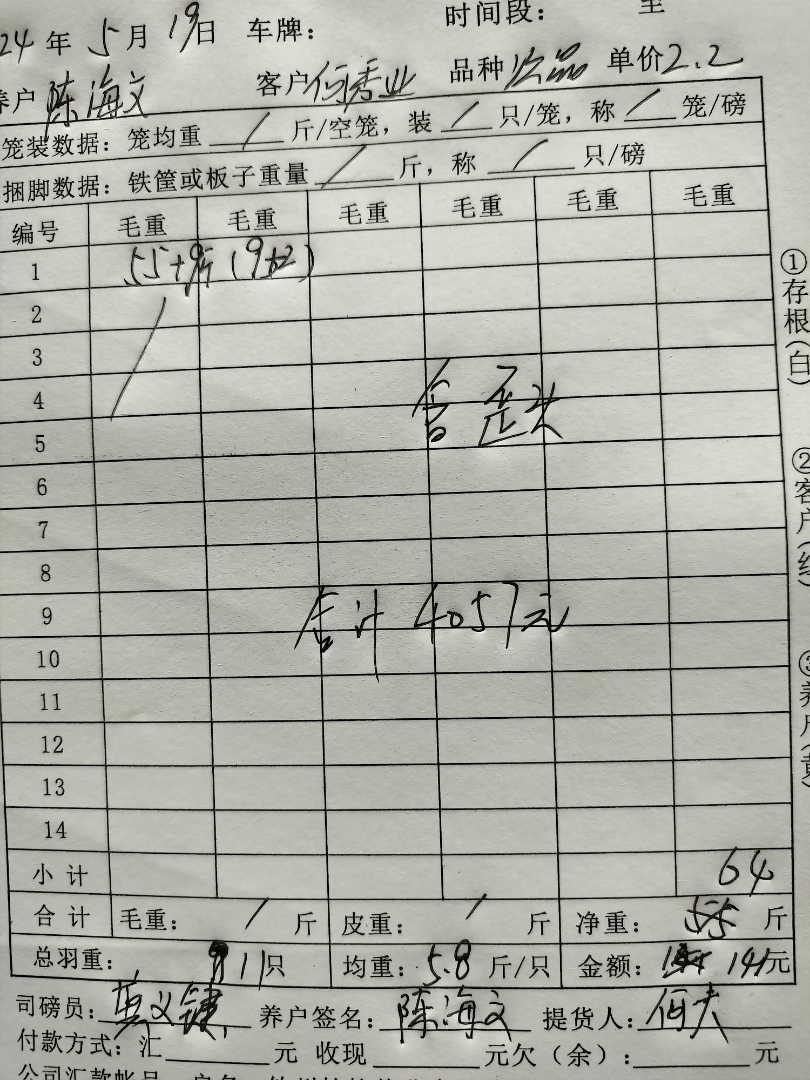 24 年 5 月 19 日 车牌: 时间段: 至
养户 陈海文 客户 何秀业 品种 次品 单价 2.2
笼装数据: 笼均重 / 斤/空笼, 装 / 只/笼, 称 / 笼/磅
捆脚数据: 铁筐或板子重量 / 斤, 称 / 只/磅
编号 毛重 毛重 毛重 毛重 毛重 毛重
1 55+9斤
2
3
4 含歪头
5
6
7
8
9 合计 4057元
10
11
12
13
14
小计 64
合计 毛重: / 斤 皮重: / 斤 净重: 55 斤
总羽重: 11只 均重: 5.8 斤/只 金额: 141元
司磅员: 养户签名: 陈海文 提货人:
付款方式: 汇 元 收现 元欠(余): 元
①存根(白)
②客户(红)
③养户(黄)